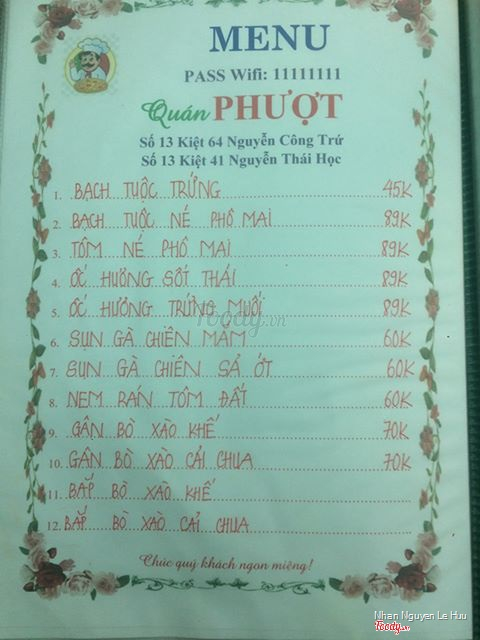 MENU
PASS Wifi: 11111111
Quán PHƯỢT
Số 13 Kiệt 64 Nguyễn Công Trứ
Số 13 Kiệt 41 Nguyễn Thái Học
1. BẠCH TUỘC TRỨNG 45K
2. BẠCH TUỘC NÉ PHÔ MAI 89K
3. TÔM NÉ PHÔ MAI 89K
4. ỐC HƯƠNG SỐT THÁI 89K
5. ỐC HƯƠNG TRỨNG MUỐI 89K
foody.vn
6. SỤN GÀ CHIÊN MẮM 60K
7. SỤN GÀ CHIÊN SẢ ỚT 60K
8. NEM RÁN TÔM ĐẤT 60K
9. GÂN BÒ XÀO KHẾ 70K
10. GÂN BÒ XÀO CẢI CHUA 70K
11. BẮP BÒ XÀO KHẾ
12. BẮP BÒ XÀO CẢI CHUA
Chúc quý khách ngon miệng!
Nhan Nguyen Le Huu
foody.vn